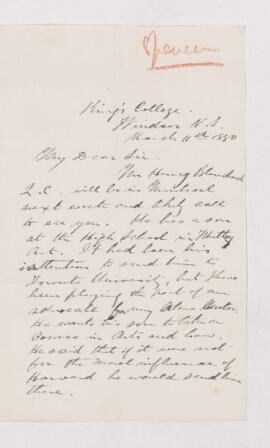 King's College.
Windsor N.S.
March 11th 18
My Dear Sir.
Mr Henry Blanchard
Q.C. will be in Montreal
next week and likely call
to see you. He has a son
at the High School in Whitby
Ont. It had been his
intention to send him to
Toronto University, but I have
been playing the part of an
advocate for my Alma Mater
He wants his son to take a
Course in Arts and Law.
He said that if it were not
for the moral influence of
Harvard he would send him
there.